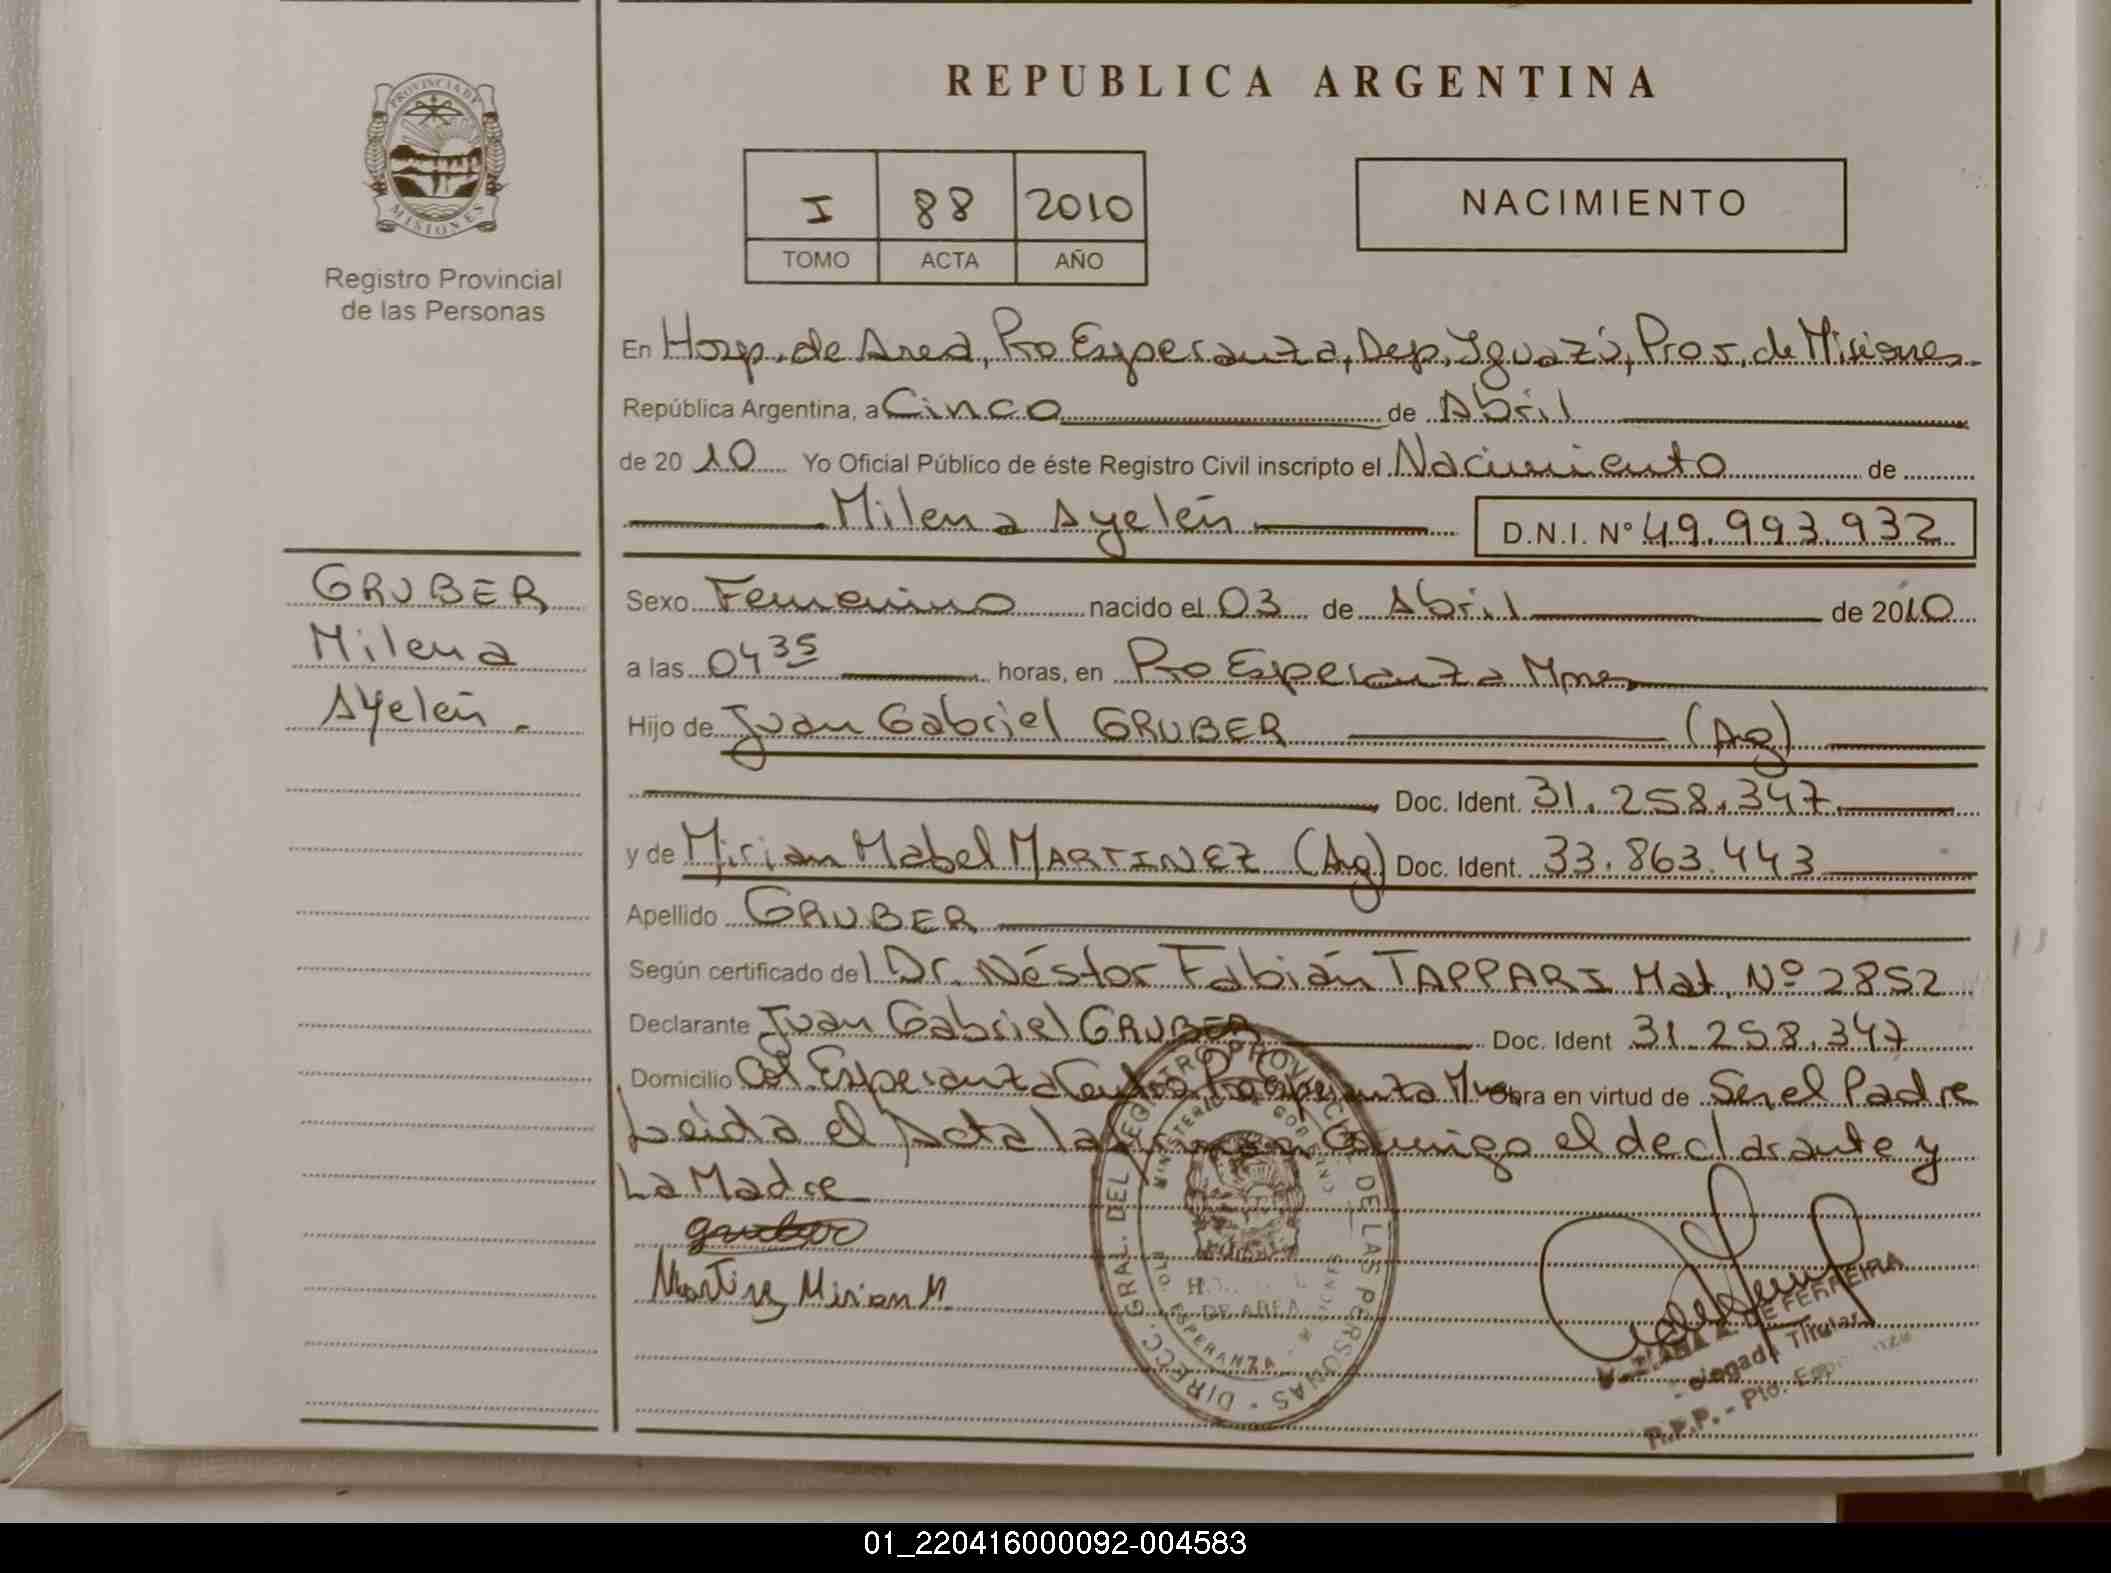 PROVINCIA DE
MISIONES
Registro Provincial
de las Personas
REPUBLICA ARGENTINA
I 88 2010
TOMO ACTA AÑO
NACIMIENTO
En Hosp. de Area, Pto Esperanza, Dep. Iguazú, Prov. de Misiones
República Argentina, a Cinco de Abril
de 2010 Yo Oficial Público de éste Registro Civil inscripto el Nacimiento de
Milena Ayelén D.N.I. Nº 49.993.932
GRUBER
Milena
Ayelén.
Sexo Femenino nacido el 03 de Abril de 2010
a las 04 35 horas, en Pto Esperanza Mnes
Hijo de Juan Gabriel GRUBER (Ag)
Doc. Ident. 31.258.347
y de Mirian Mabel MARTINEZ (Ag) Doc. Ident. 33.863.443
Apellido GRUBER
Según certificado del Dr. Néstor Fabián TAPPARI Mat. Nº 2852
Declarante Juan Gabriel GRUBER Doc. Ident 31.258.347
Domicilio Col Esperanza Centro Pto Esperanza Obra en virtud de Ser el Padre
Leida el Acta la firman Conmigo el declarante y
La Madre
gruber
Martinez Mirian M.
DIRECC. GRAL. DEL REGISTRO PROVINCIAL DE LAS PERSONAS
MINISTERIO DE GOBIERNO
DE AREA
ESPERANZA
DE FERREIRA
Delegada Titular
R.P.P. - Pto. Esperanza
01_220416000092-004583